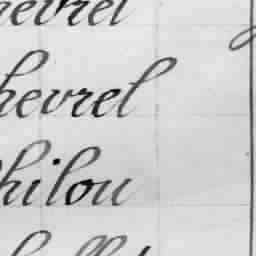 hevrel
hevrel
hilou